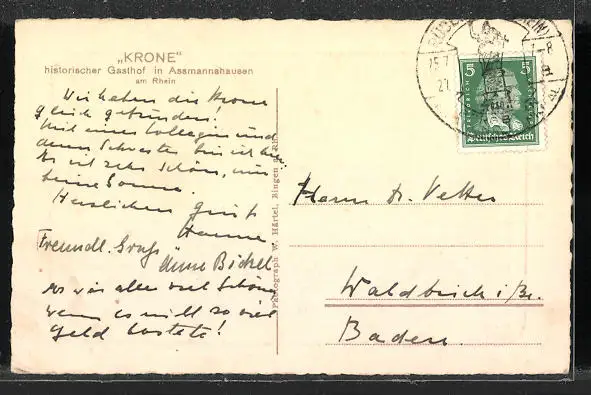 „KRONE"
historischer Gasthof in Assmannshausen
am Rhein
Wir haben die Krone
gleich gefunden!
Mit einer Kollegin und
deren Schwester bin ich hier
Es ist sehr schön, nur
keine Sonne.
Herzlichen Gruß
Hanne
Freundl. Gruß
Änne Bickel
Es wär alles viel schöner
wenn es nicht so viel
Geld kostete!
Photograph W. Härtel, Bingen a. Rh.
RÜDE
25.7
27
7-8
5 5
FRIEDRICH
Deutsches Reich
Herrn Dr. Vetter
Waldkirch i/Br.
Baden.